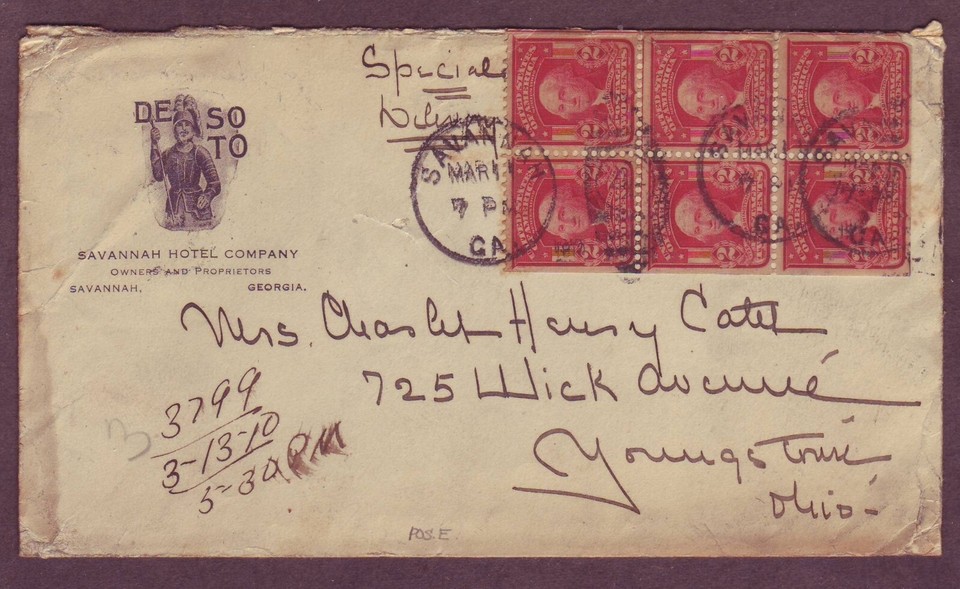 Special
Delivery
DE SO
TO
SAVANNAH HOTEL COMPANY
OWNERS AND PROPRIETORS
SAVANNAH, GEORGIA.
SAVANNAH
MAR 1
7 PM
GA.
Mrs. Charles Henry Cates
725 Wick Avenue
Youngstown
Ohio-
3799
3-13-10
5-30 PM
POS. E.